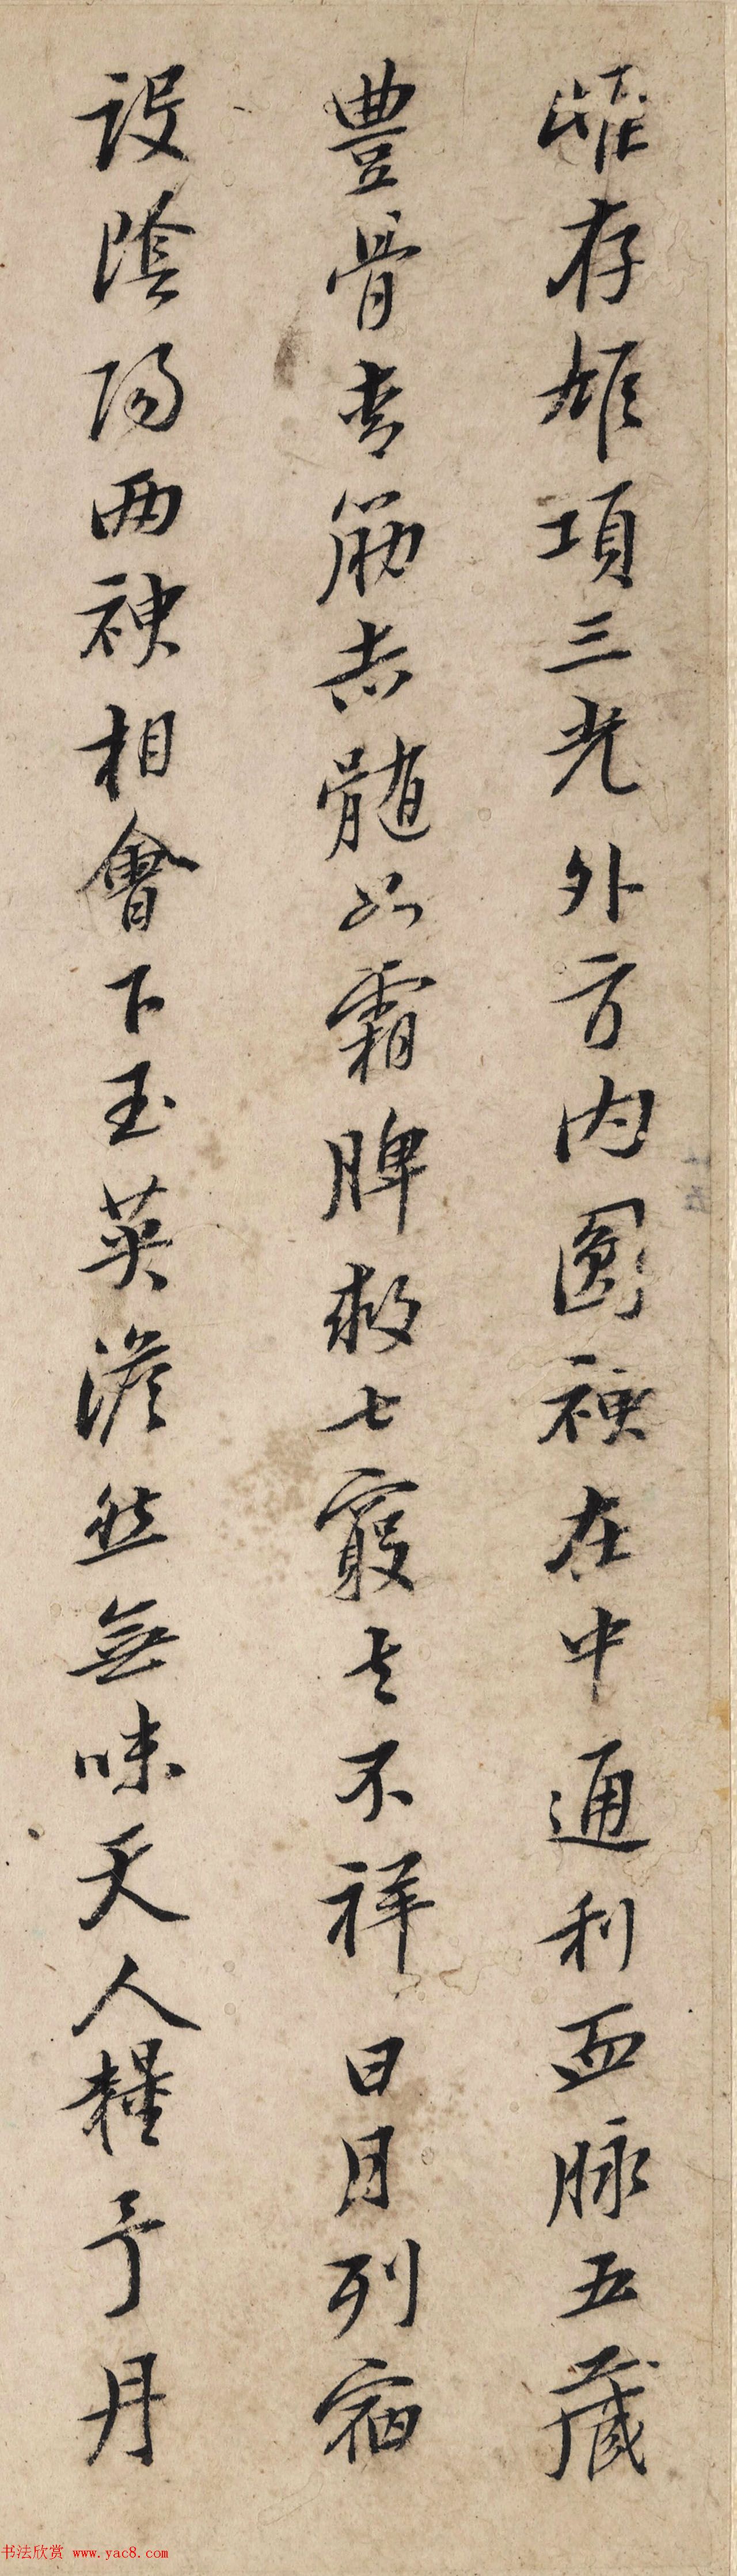 雌存雄項三光外方内圓神在中通利血脉五藏
豊骨青筋赤髓如霜脾救七竅去不祥日月列宿
設陰陽两神相會下玉英澹然無味天人糧子丹
书法欣赏 www.yac8.com